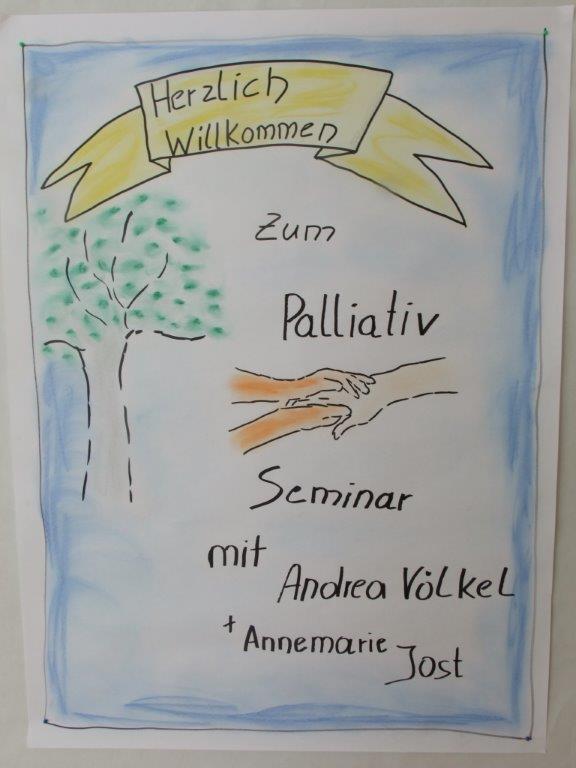 Herzlich
Willkommen
zum
Palliativ
Seminar
mit
Andrea Völkel
+ Annemarie Jost